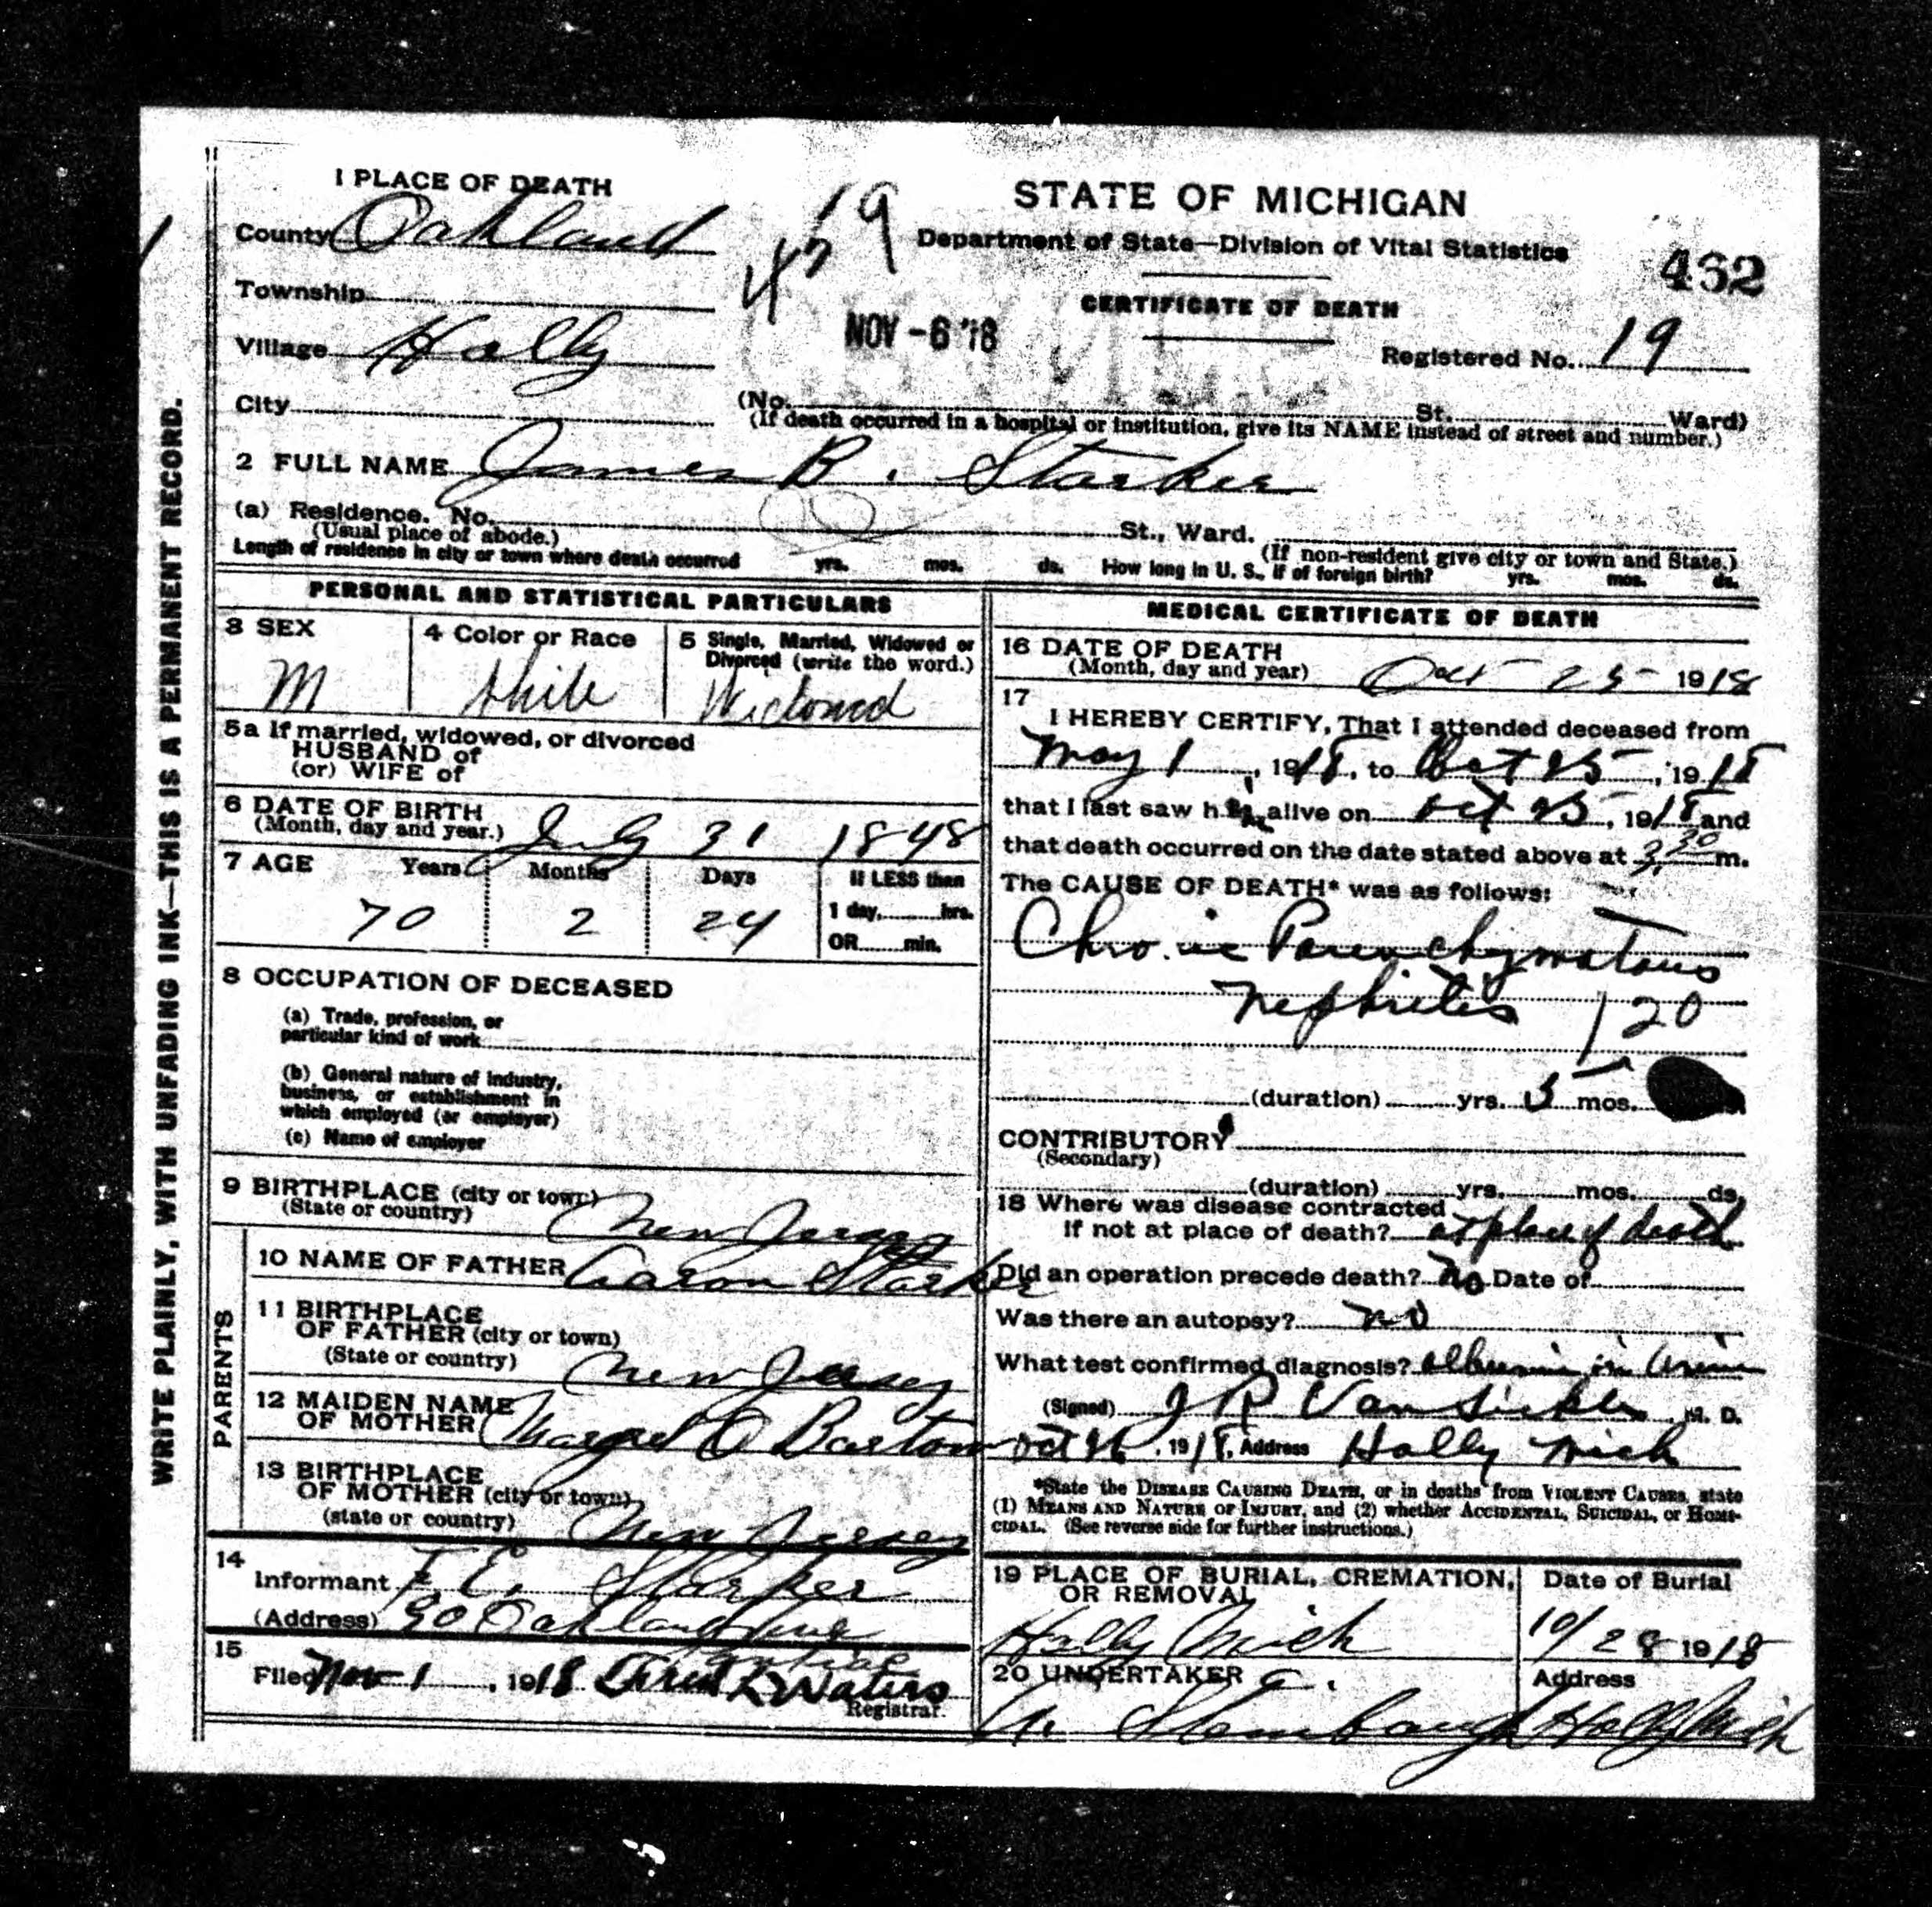 1 PLACE OF DEATH
County Oakland
Township
Village Holly
City
19
STATE OF MICHIGAN
Department of State—Division of Vital Statistics
462
CERTIFICATE OF DEATH
NOV -6 '18
Registered No. 19
(No. St. Ward)
(If death occurred in a hospital or institution, give its NAME instead of street and number.)
2 FULL NAME James B. Starker
(a) Residence. No. St., Ward.
(Usual place of abode.) (If non-resident give city or town and State.)
Length of residence in city or town where death occurred yrs. mos. ds. How long in U. S., if of foreign birth? yrs. mos. ds.
WRITE PLAINLY, WITH UNFADING INK—THIS IS A PERMANENT RECORD.
PERSONAL AND STATISTICAL PARTICULARS
3 SEX
M
4 Color or Race
White
5 Single, Married, Widowed or
Divorced (write the word.)
Widowed
5a If married, widowed, or divorced
HUSBAND of
(or) WIFE of
6 DATE OF BIRTH
(Month, day and year.) July 31 1848
7 AGE Years Months Days If LESS than
70 2 24 1 day, hrs.
OR min.
8 OCCUPATION OF DECEASED
(a) Trade, profession, or
particular kind of work
(b) General nature of industry,
business, or establishment in
which employed (or employer)
(c) Name of employer
9 BIRTHPLACE (city or town)
(State or country) New Jersey
PARENTS
10 NAME OF FATHER Aaron Starker
11 BIRTHPLACE
OF FATHER (city or town)
(State or country) New Jersey
12 MAIDEN NAME
OF MOTHER Margret O Bartow
13 BIRTHPLACE
OF MOTHER (city or town)
(state or country) New Jersey
14
Informant F. E. Starker
(Address) 90 Oakland Ave
Pontiac
15
Filed Nov 1, 1918 Fred L Waters
Registrar.
MEDICAL CERTIFICATE OF DEATH
16 DATE OF DEATH
(Month, day and year) Oct 25 1918
17
I HEREBY CERTIFY, That I attended deceased from
May 1, 1918, to Oct 25, 1918
that I last saw him alive on Oct 25, 1918 and
that death occurred on the date stated above at 3.30 m.
The CAUSE OF DEATH* was as follows:
Chronic Parenchymatous
Nephritis 120
(duration) yrs. 5 mos.
CONTRIBUTORY
(Secondary)
(duration) yrs. mos. ds.
18 Where was disease contracted
if not at place of death? at place of death
Did an operation precede death? No Date of
Was there an autopsy? no
What test confirmed diagnosis? albumin in Urine
(Signed) J R VanSickle, M. D.
Oct 26, 1918, Address Holly Mich
*State the DISEASE CAUSING DEATH, or in deaths from VIOLENT CAUSES, state
(1) MEANS AND NATURE OF INJURY, and (2) whether ACCIDENTAL, SUICIDAL, or HOMI-
CIDAL. (See reverse side for further instructions.)
19 PLACE OF BURIAL, CREMATION,
OR REMOVAL
Holly Mich
Date of Burial
10/28 1918
20 UNDERTAKER
Address
Holly Mich